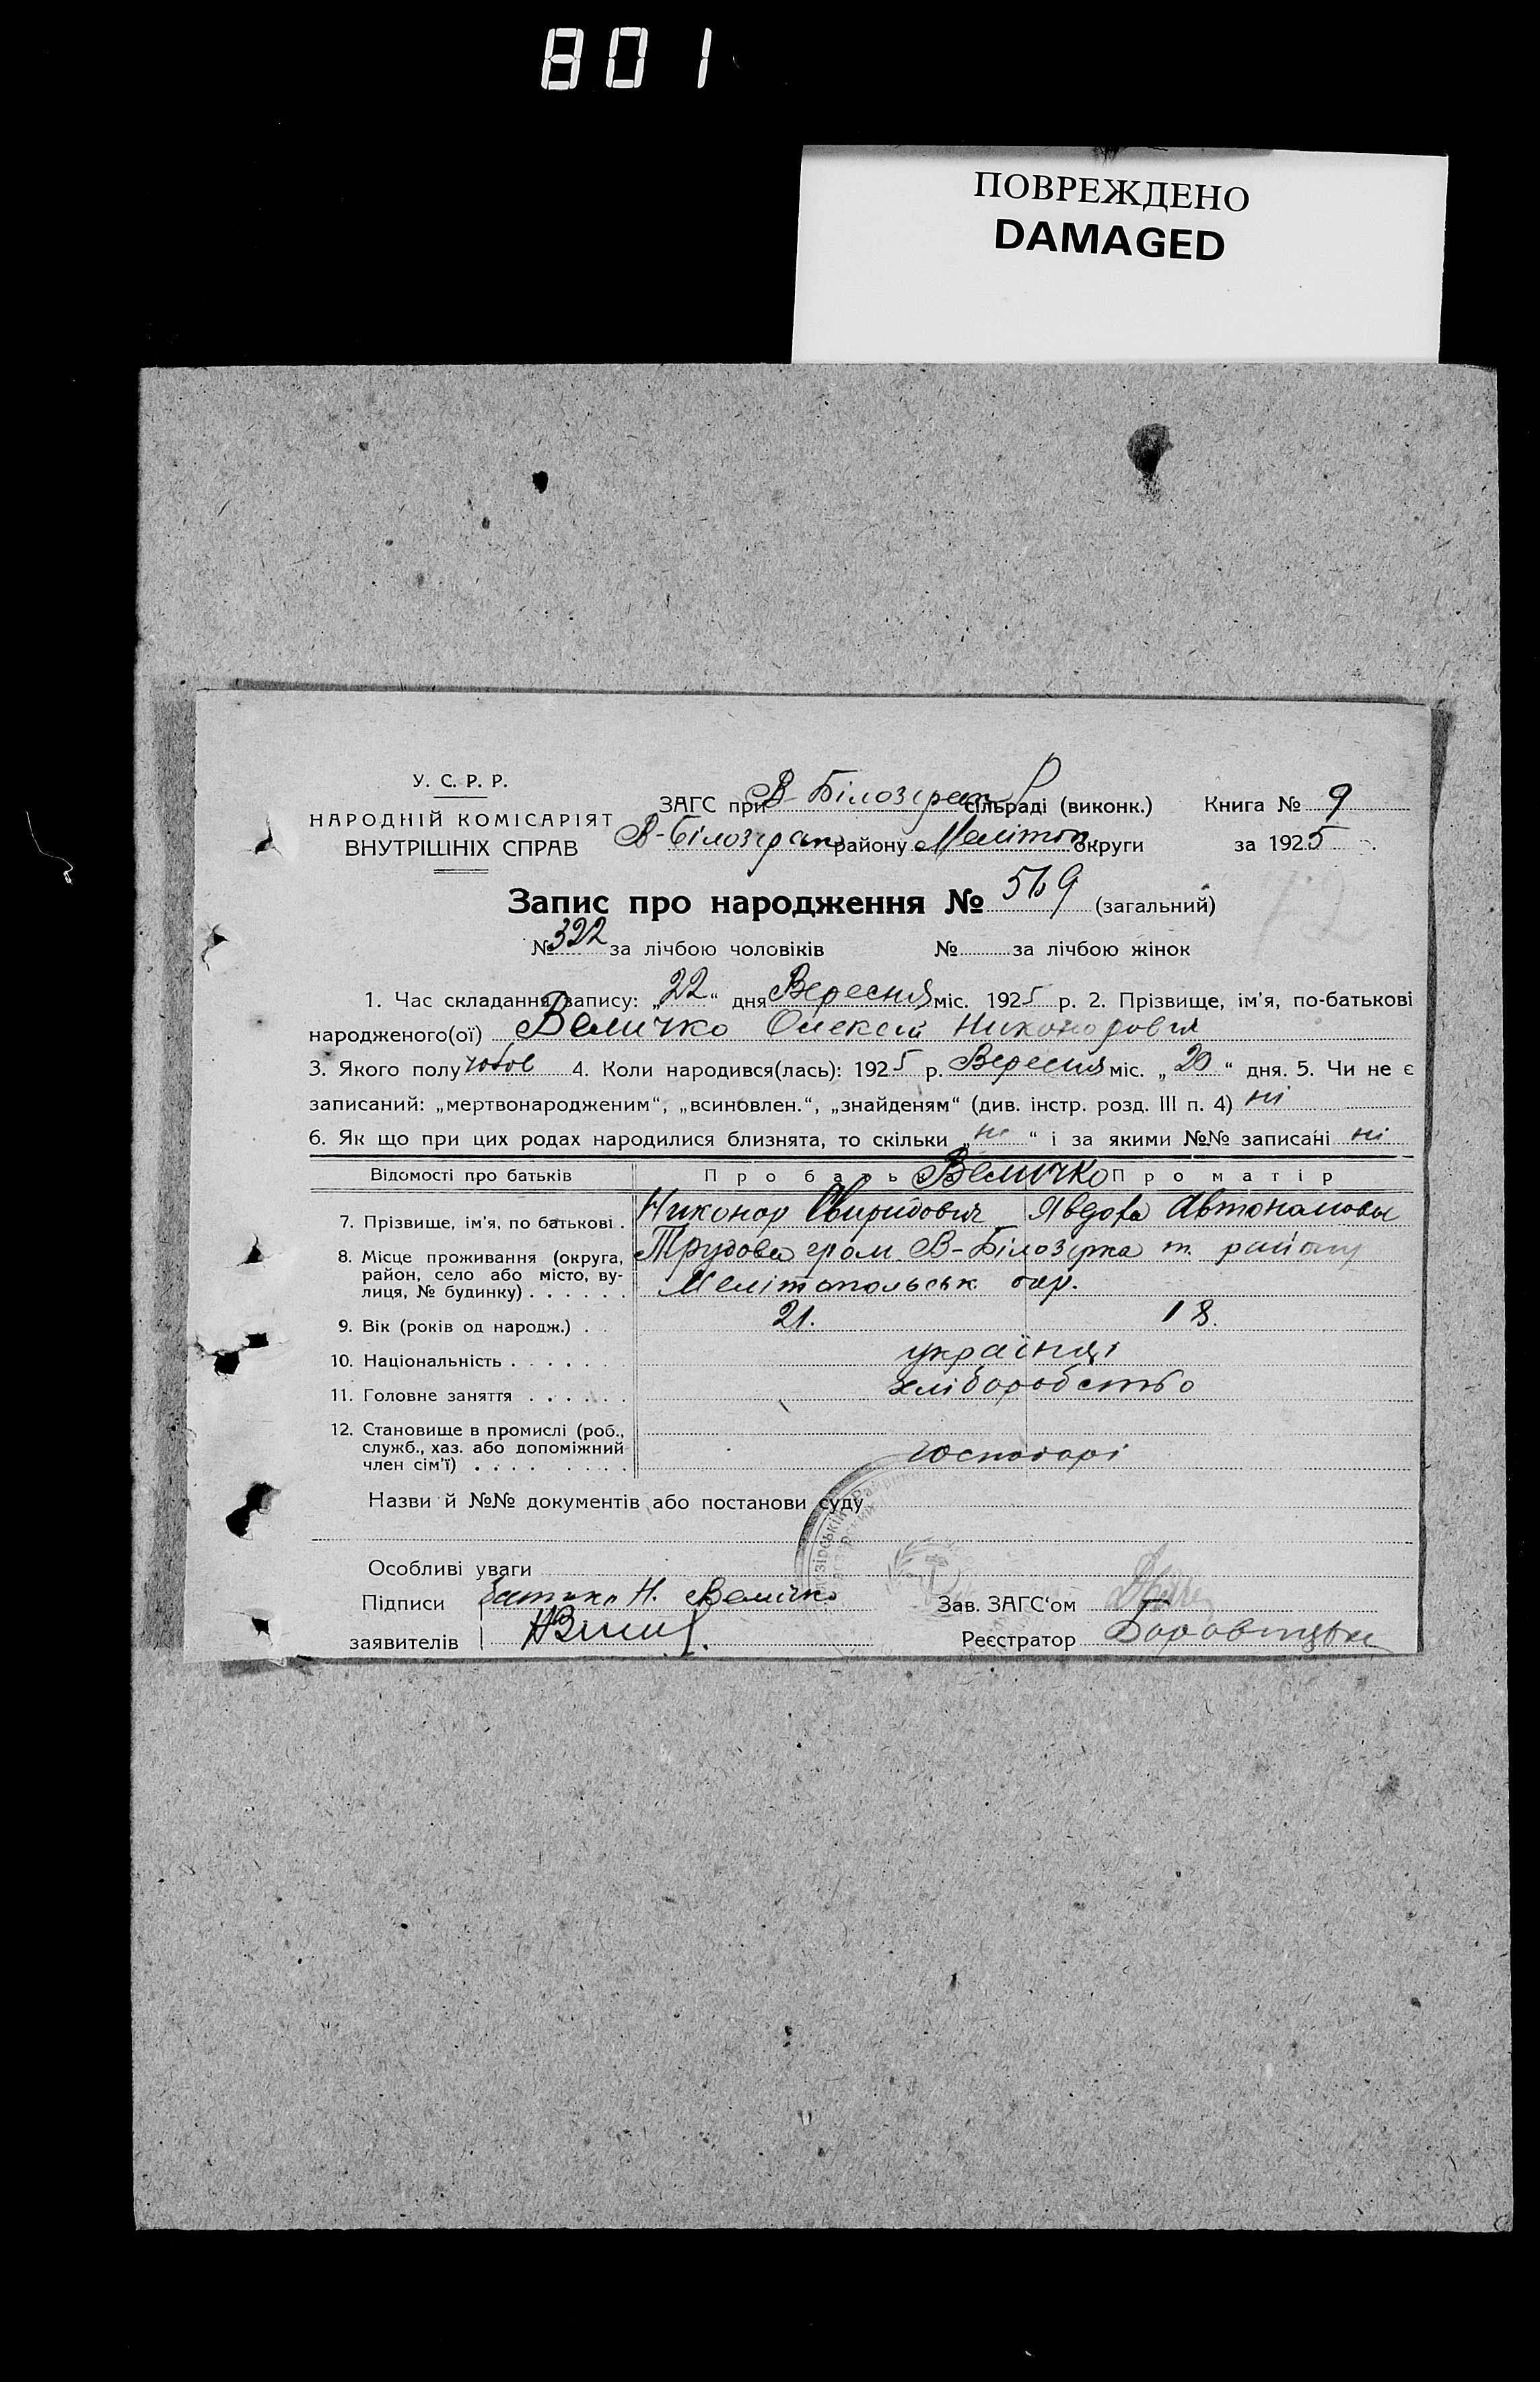 801
ПОВРЕЖДЕНО
DAMAGED
У. С. Р. Р.
НАРОДНІЙ КОМІСАРІЯТ
ВНУТРІШНІХ СПРАВ
ЗАГС при В-Білозерск сільраді (виконк.) Книга № 9
В-Білозерск району Мелітоп округи за 1925
Запис про народження № 569 (загальний)
№ 322 за лічбою чоловіків № за лічбою жінок
1. Час складання запису: „22“ дня Вересня міс. 1925 р. 2. Прізвище, ім'я, по-батькові
народженого(ої) Величко Олексій Никонорович
3. Якого полу чолов 4. Коли народився(лась): 1925 р. Вересня міс. „20“ дня. 5. Чи не є
записаний: „мертвонародженим“, „всиновлен.“, „знайденям“ (див. інстр. розд. III п. 4) ні
6. Як що при цих родах народилися близнята, то скільки „ні“ і за якими №№ записані ні
Відомості про батьків Про батька Величко Про матір
7. Прізвище, ім'я, по батькові . Никонор Свиридович Явдоха Автономовна
8. Місце проживання (округа, Трудова гром. В-Білозірка т. району
район, село або місто, ву- Мелітопольськ окр.
лиця, № будинку) . . . . . .
9. Вік (років од народж.) . . 21. 18.
10. Національність . . . . . . українці
11. Головне заняття . . . . . хліборобство
12. Становище в промислі (роб.,
служб., хаз. або допоміжний господарі
член сім'ї) . . . . . . . .
Назви й №№ документів або постанови суду
Особливі уваги
Підписи батько Н. Величко Зав. ЗАГС'ом
заявителів Реєстратор